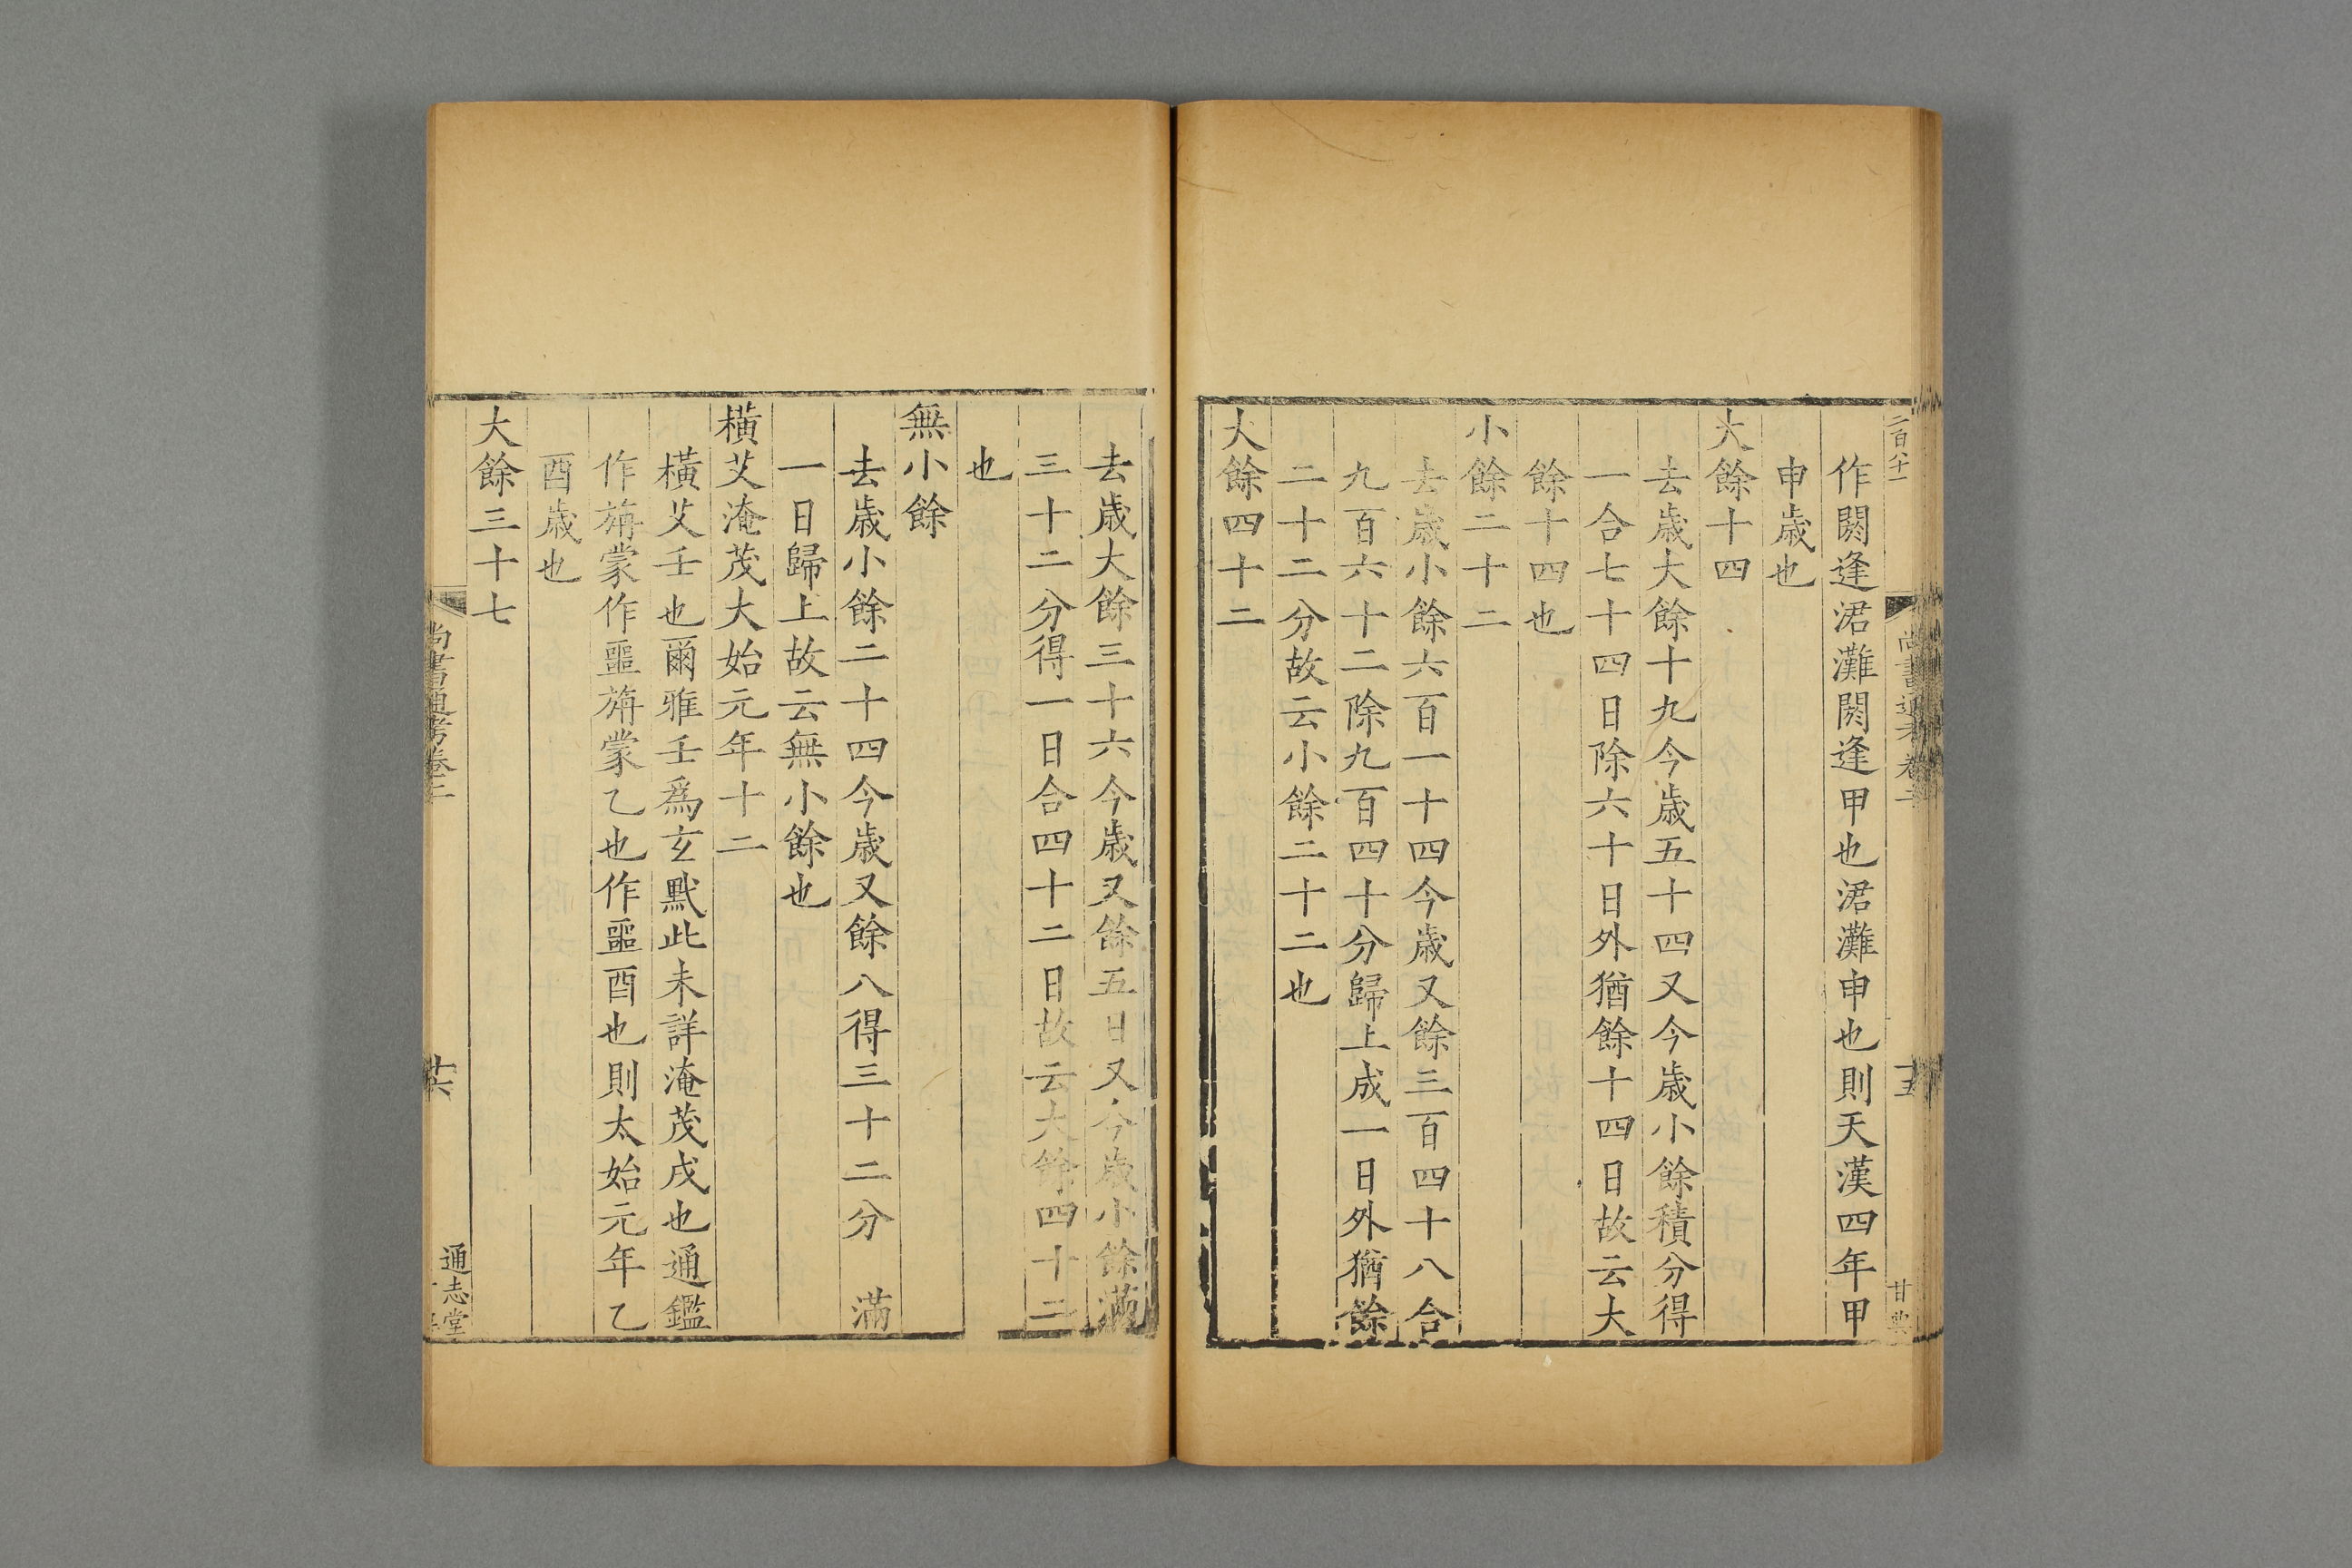 二百八十一
尚書通考卷二
十五
甘典
作閼逢涒灘閼逢甲也涒灘申也則天漢四年甲
申歲也
大餘十四
去歲大餘十九今歲五十四又今歲小餘積分得
一合七十四日除六十日外猶餘十四日故云大
餘十四也
小餘二十二
去歲小餘六百一十四今歲又餘三百四十八合
九百六十二除九百四十分歸上成一日外猶餘
二十二分故云小餘二十二也
大餘四十二
去歲大餘三十六今歲又餘五日又今歲小餘滿
三十二分得一日合四十二日故云大餘四十二
也
無小餘
去歲小餘二十四今歲又餘八得三十二分 滿
一日歸上故云無小餘也
橫艾淹茂大始元年十二
橫艾壬也爾雅壬爲玄黓此未詳淹茂戌也通鑑
作旃蒙作噩旃蒙乙也作噩酉也則太始元年乙
酉歲也
大餘三十七
尚書通考卷二
十六
通志堂